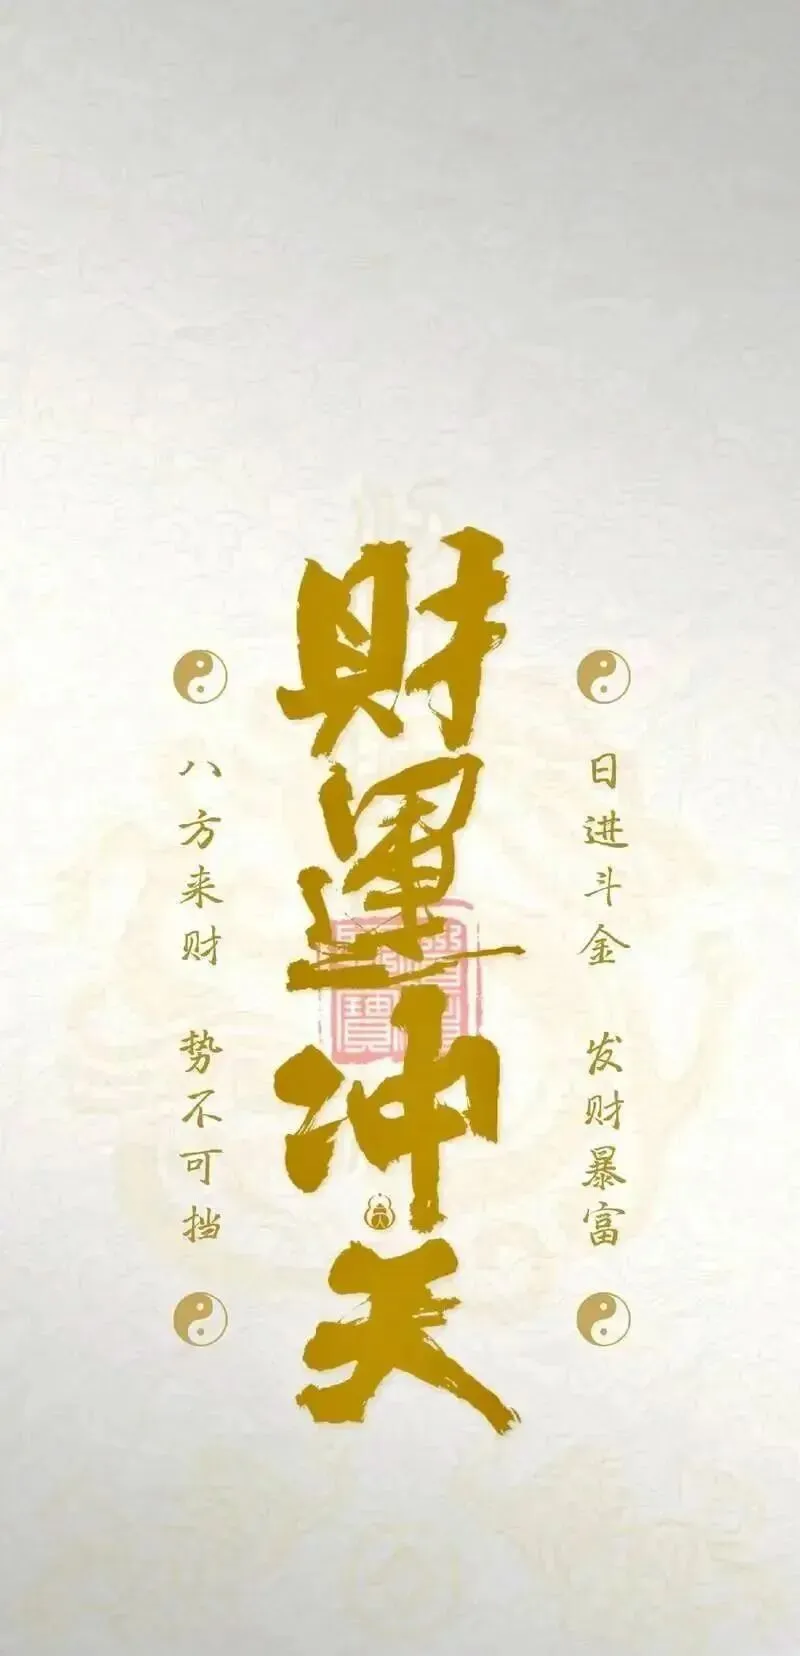 財運冲天
日进斗金 发财暴富
八方来财 势不可挡